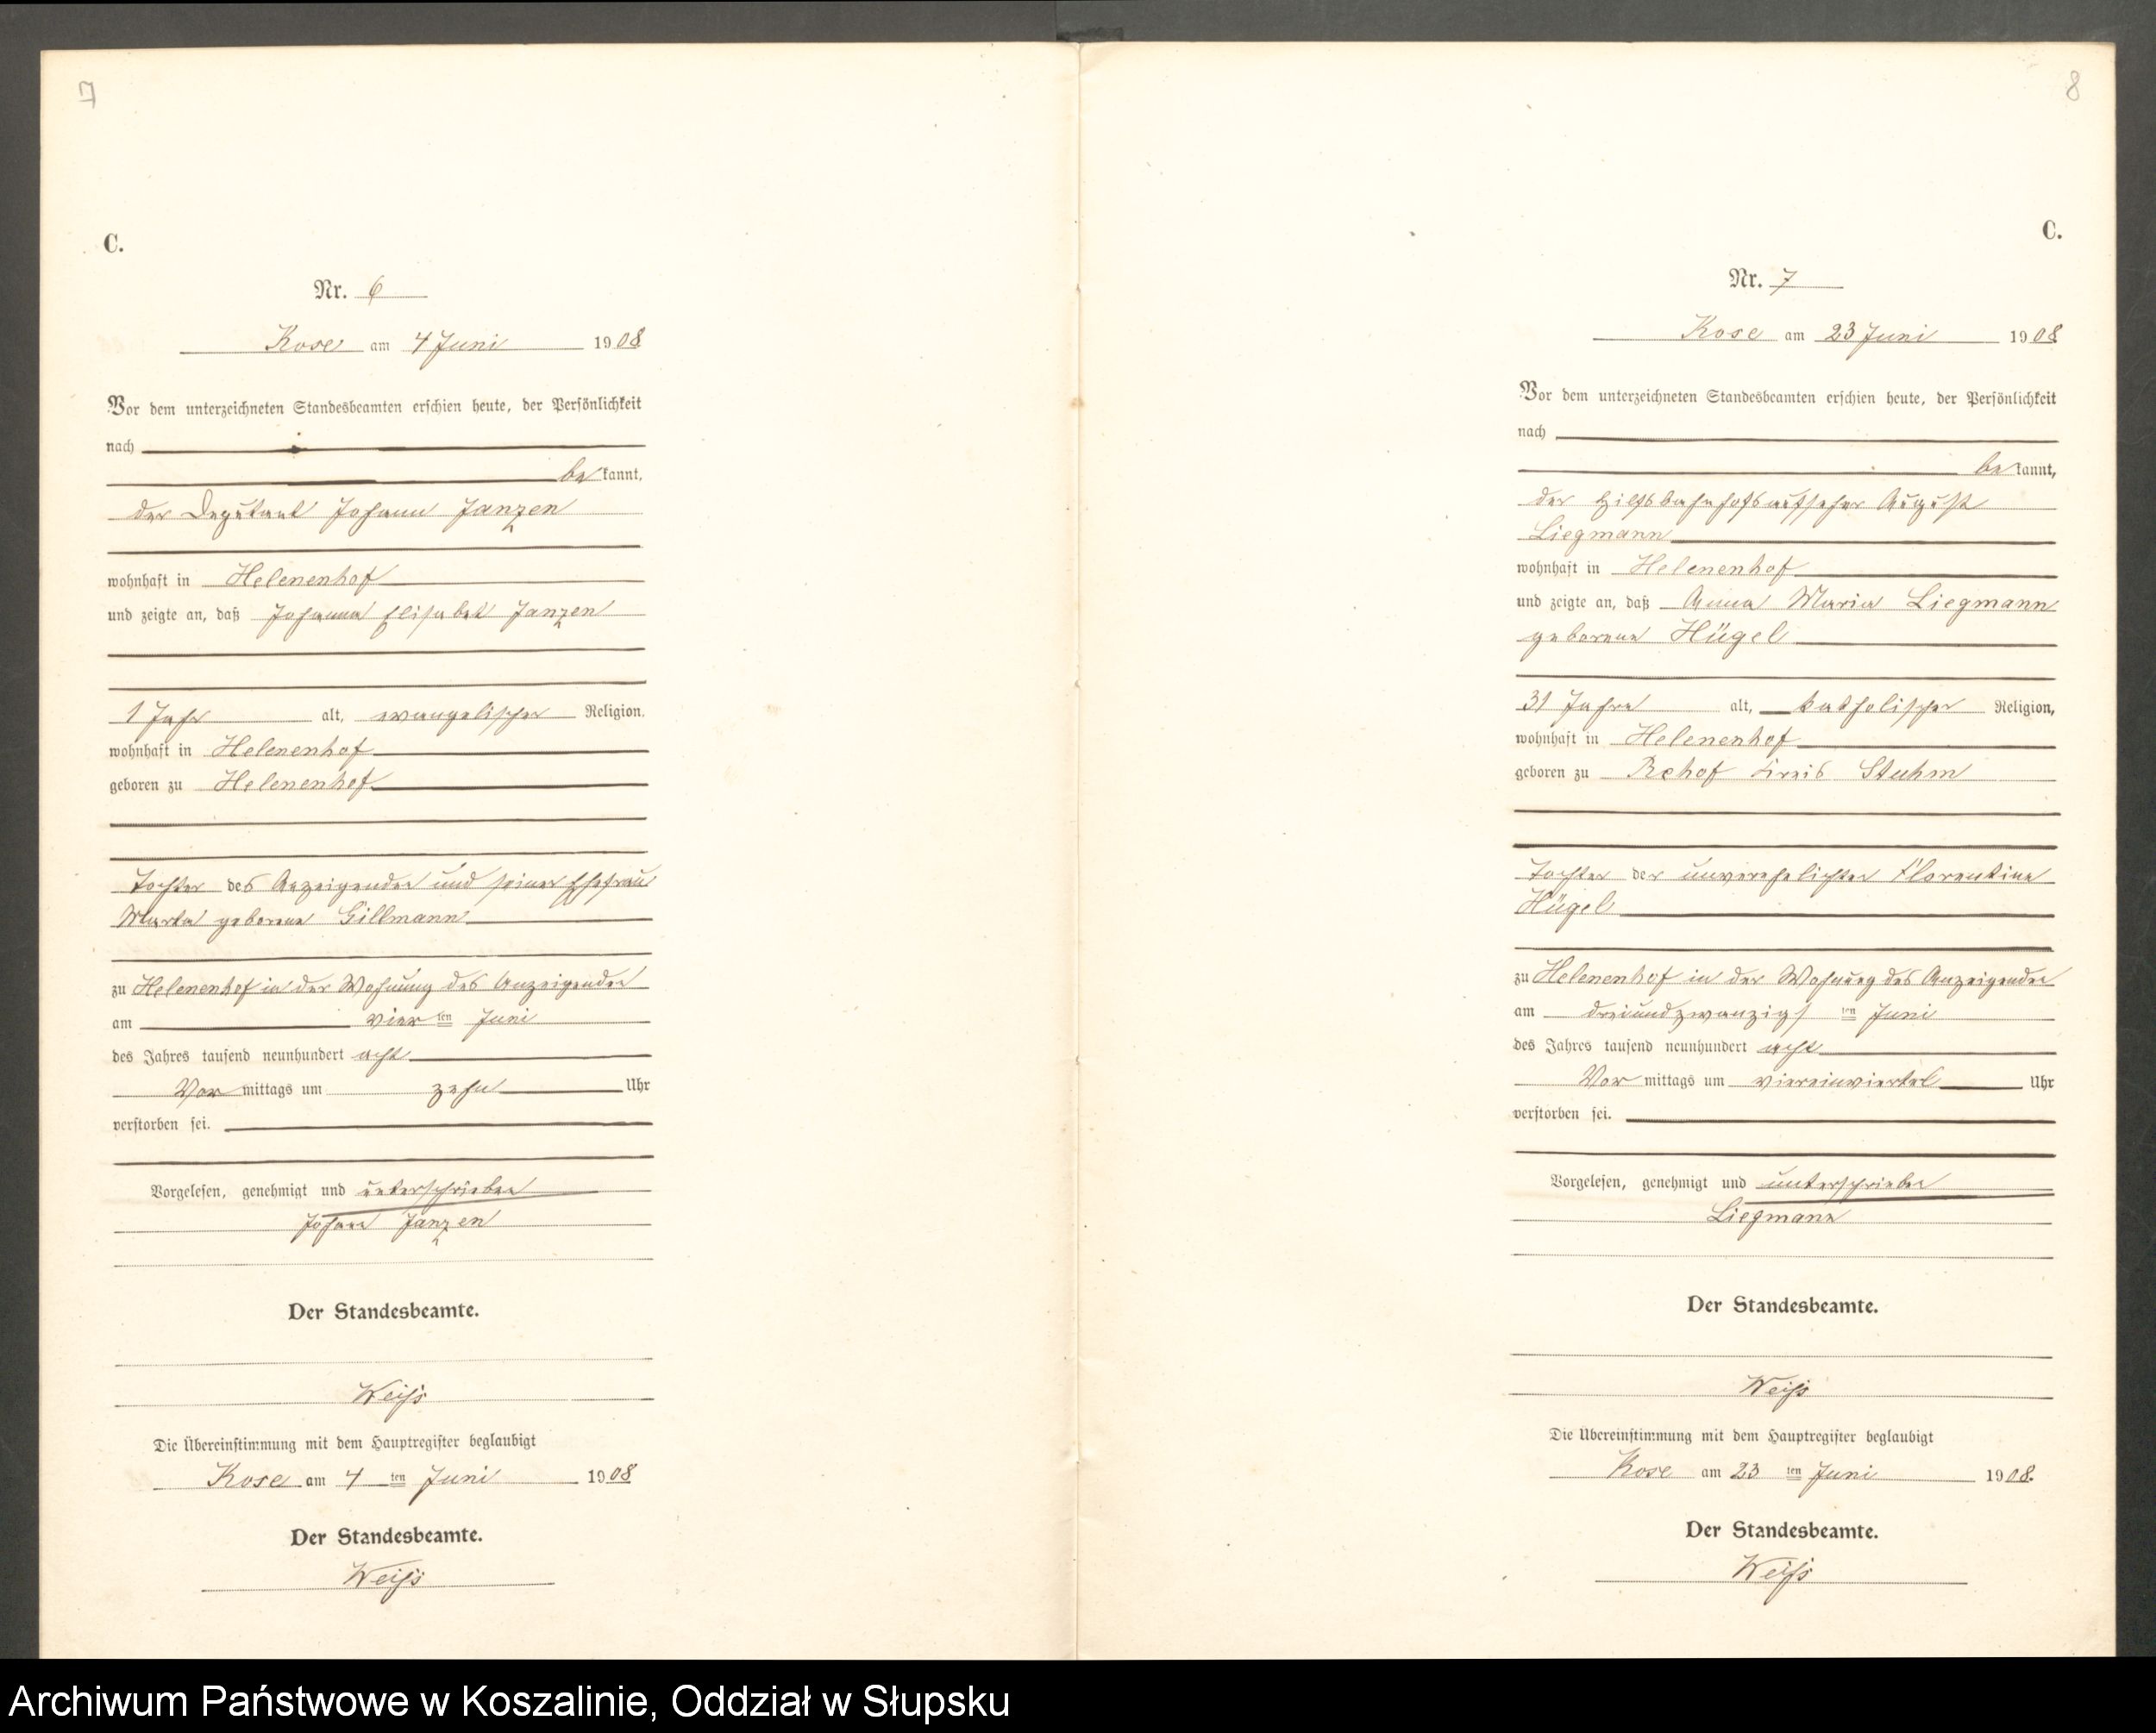 7
C.
Nr. 6
Kose am 4 Juni 1908
Vor dem unterzeichneten Standesbeamten erschien heute, der Persönlichkeit
nach
be kannt,
der Deputant Johann Janzen
wohnhaft in Helenenhof
und zeigte an, daß Johanna Elisabet Janzen
1 Jahr alt, evangelischer Religion,
wohnhaft in Helenenhof
geboren zu Helenenhof
Tochter des Anzeigenden und seiner Ehefrau
Marta geborene Gillmann
zu Helenenhof in der Wohnung des Anzeigenden
am vier ten Juni
des Jahres tausend neunhundert acht
Vor mittags um zehn Uhr
verstorben sei.
Vorgelesen, genehmigt und unterschrieben
Johann Janzen
Der Standesbeamte.
Weiss
Die Übereinstimmung mit dem Hauptregister beglaubigt
Kose am 4 ten Juni 1908
Der Standesbeamte.
Weiss
8
C.
Nr. 7
Kose am 23 Juni 1908
Vor dem unterzeichneten Standesbeamten erschien heute, der Persönlichkeit
nach
be kannt,
der Hilfsbahnhofsaufseher August
Liegmann
wohnhaft in Helenenhof
und zeigte an, daß Anna Maria Liegmann
geborene Hügel
31 Jahre alt, katholischer Religion,
wohnhaft in Helenenhof
geboren zu Rehof Kreis Stuhm
Tochter der unverehelichten Florentine
Hügel
zu Helenenhof in der Wohnung des Anzeigenden
am dreiundzwanzigs ten Juni
des Jahres tausend neunhundert acht
Vor mittags um viereinviertel Uhr
verstorben sei.
Vorgelesen, genehmigt und unterschrieben
Liegmann
Der Standesbeamte.
Weiss
Die Übereinstimmung mit dem Hauptregister beglaubigt
Kose am 23 ten Juni 1908.
Der Standesbeamte.
Weiss
Archiwum Państwowe w Koszalinie, Oddział w Słupsku